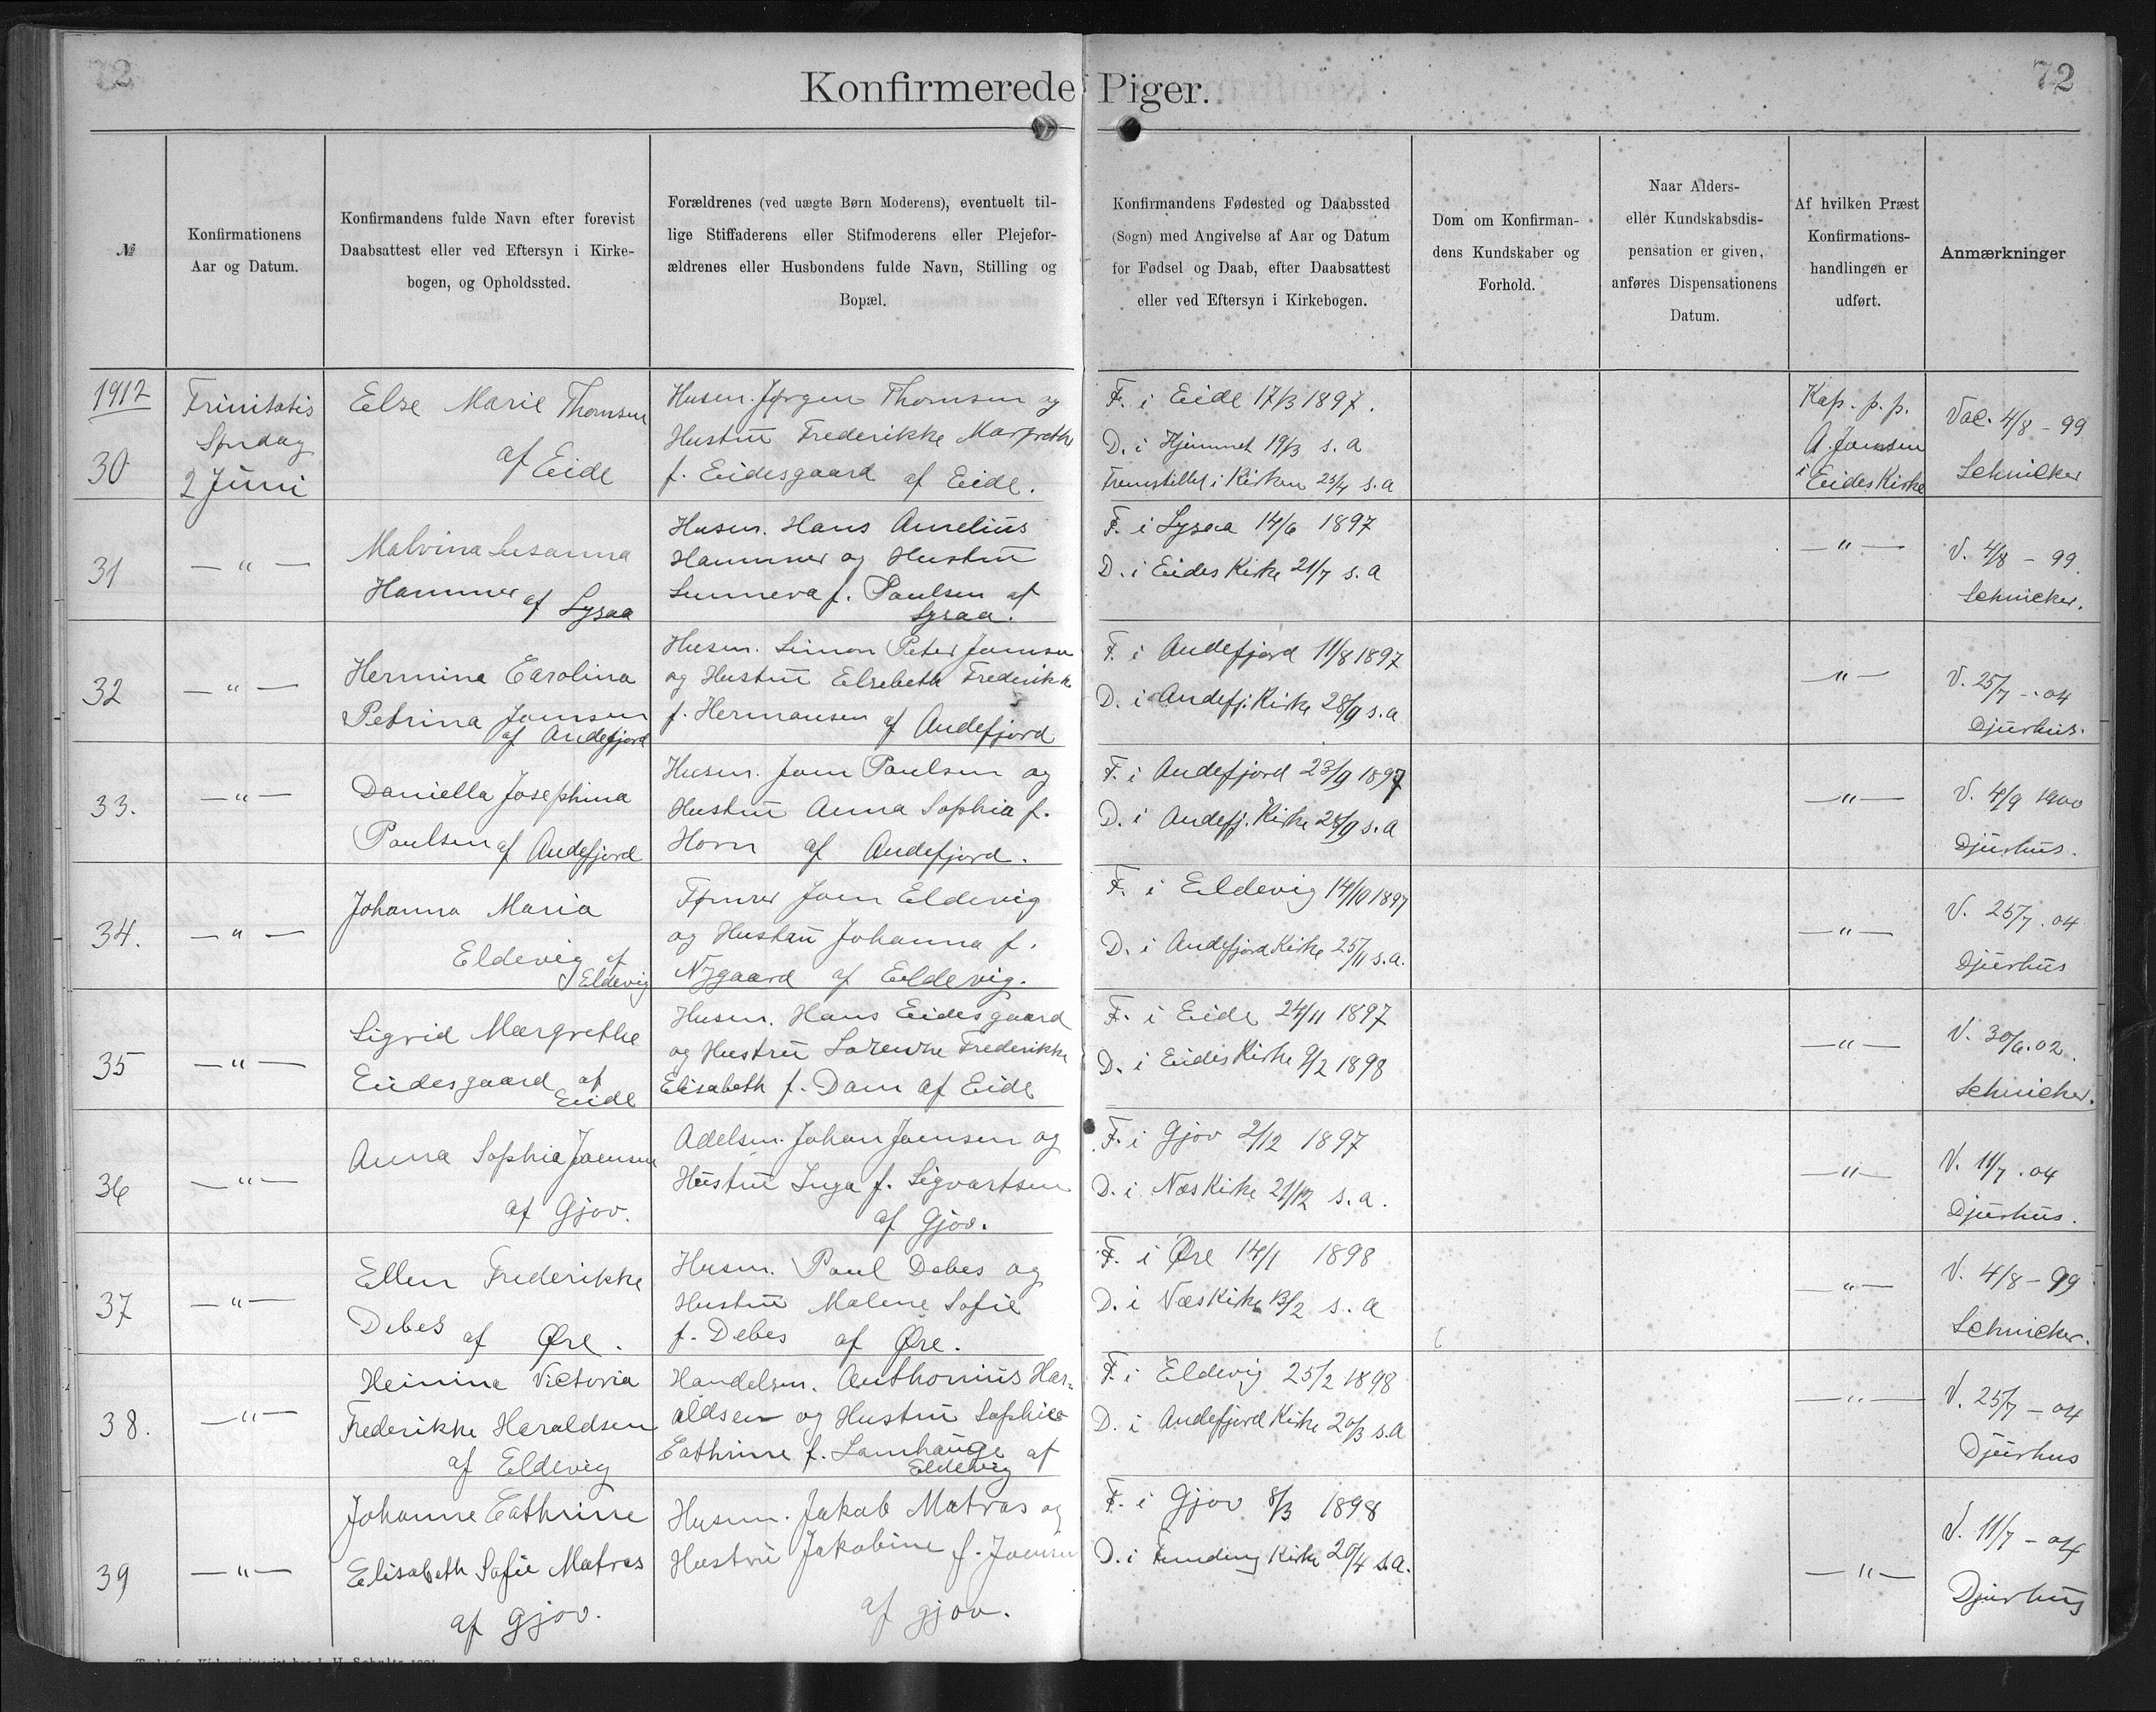 72
Konfirmerede Piger.
72
№
Konfirmationens
Aar og Datum.
Konfirmandens fulde Navn efter forevist
Daabsattest eller ved Eftersyn i Kirke-
bogen, og Opholdssted.
Forældrenes (ved uægte Børn Moderens), eventuelt til-
lige Stiffaderens eller Stifmoderens eller Plejefor-
ældrenes eller Husbondens fulde Navn, Stilling og
Bopæl.
Konfirmandens Fødested og Daabssted
(Sogn) med Angivelse af Aar og Datum
for Fødsel og Daab, efter Daabsattest
eller ved Eftersyn i Kirkebogen.
Dom om Konfirman-
dens Kundskaber og
Forhold.
Naar Alders-
eller Kundskabsdis-
pensation er given,
anføres Dispensationens
Datum.
Af hvilken Præst
Konfirmations-
handlingen er
udført.
Anmærkninger
1912
30
Trinitatis
Søndag
2 Juni
Else Marie Thomsen
af Eide
Husm. Jørgen Thomsen og
Hustru Frederikke Margrethe
f. Eidesgaard af Eide.
F. i Eide 17/3 1897.
D. i Hjemmet 19/3 s. a
Fremstillet i Kirken 25/4 s. a
Kap. p. p.
A. Joensen
i Eides Kirke
Vac. 4/8 - 99
Schnicker
31
— " —
Malvina Susanna
Hammer af Lysaa
Husm. Hans Aurelius
Hammer og Hustru
Sunneva f. Paulsen af
Lysaa.
F. i Lysaa 14/6 1897
D. i Eides Kirke 21/7 s. a
— " —
V. 4/8 - 99.
Schnicker.
32
— " —
Hermina Carolina
Petrina Joensen
af Andefjord
Husm. Simon Peter Joensen
og Hustru Elsebeth Frederikke
f. Hermansen af Andefjord
F. i Andefjord 11/8 1897
D. i Andefj. Kirke 28/9 s. a
— " —
V. 25/7 - 04
Djurhus.
33.
— " —
Daniella Josephina
Paulsen af Andefjord
Husm. Joen Paulsen og
Hustru Anna Sophia f.
Horn af Andefjord.
F. i Andefjord 23/9 1897
D. i Andefj. Kirke 28/9 s. a
— " —
V. 4/9 1900
Djurhus.
34.
— " —
Johanna Maria
Eldevig af
Eldevig
Tømrer Joen Eldevig
og Hustru Johanna f.
Nygaard af Eldevig.
F. i Eldevig 14/10 1897
D. i Andefjord Kirke 25/11 s. a.
— " —
V. 25/7. 04
Djurhus
35
— " —
Sigrid Margrethe
Eidesgaard af
Eide
Husm. Hans Eidesgaard
og Hustru Lorentze Frederikke
Elisabeth f. Dam af Eide
F. i Eide 24/11 1897
D. i Eides Kirke 9/2 1898
— " —
V. 30/6. 02.
Schnicker.
36
— " —
Anna Sophia Joensen
af Gjov.
Adelsm. Johan Joensen og
Hustru Inga f. Sigvartsen
af Gjov.
F. i Gjov 2/12 1897
D. i Næs Kirke 21/12 s. a.
— " —
V. 11/7. 04
Djurhus.
37
— " —
Ellen Frederikke
Debes af Øre.
Husm. Poul Debes og
Hustru Malene Sofie
f. Debes af Øre.
F. i Øre 14/1 1898
D. i Næs Kirke 13/2 s. a
— " —
V. 4/8 - 99
Schnicker.
38.
— " —
Heinine Victoria
Frederikke Haraldsen
af Eldevig
Handelsm. Anthonius Har=
aldsen og Hustru Sophie
Cathrine f. Lamhauge af
Eldevig
F. i Eldevig 25/2 1898
D. i Andefjord Kirke 20/3 s. a
— " —
V. 25/7 - 04
Djurhus
39
— " —
Johanne Cathrine
Elisabeth Sofie Matras
af Gjov.
Husm. Jakob Matras og
Hustru Jakobine f. Joensen
af Gjov.
F. i Gjov 8/3 1898
D. i Funding Kirke 20/4 s. a.
— " —
V. 11/7 - 04
Djurhus